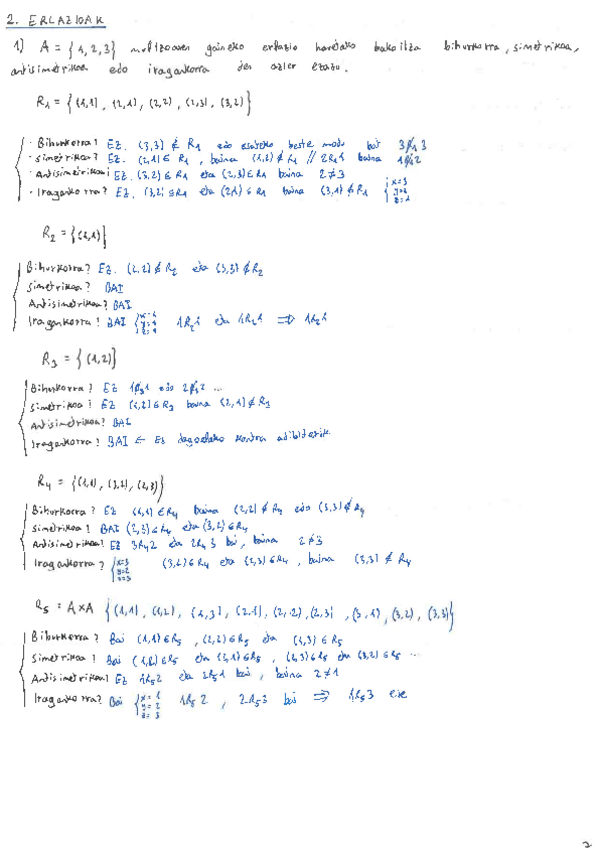 2. ERLAZIOAK
1) A = {1,2,3} multzoaren gaineko erlazio hauetako bakoitza bihurkorra, simetrikoa,
antisimetrikoa edo iragankorra den azter ezazu.
R₁ = {(1,1), (2,1), (2,2), (2,3), (3,2)}
· Bihurkorra? Ez. (3,3) ∉ R₁ edo esateko beste modu bat 3R̸₁3
· Simetrikoa? Ez. (2,1) ∈ R₁, baina (1,2) ∉ R₁ // 2R₁1 baina 1R̸₁2
· Antisimetrikoa? Ez. (3,2) ∈ R₁ eta (2,3) ∈ R₁ baina 2≠3
· Iragankorra? Ez. (3,2) ∈ R₁ eta (2,1) ∈ R₁ baina (3,1) ∉ R₁ {x=3 y=2 z=1
R₂ = {(1,1)}
Bihurkorra? Ez. (2,2) ∉ R₂ eta (3,3) ∉ R₂
Simetrikoa? BAI
Antisimetrikoa? BAI
Iragankorra? BAI {x=1 y=1 z=1 1R₂1 eta 1R₂1 ⟹ 1R₂1
R₃ = {(1,2)}
Bihurkorra? Ez 1R̸₃1 edo 2R̸₃2 ...
Simetrikoa? Ez (1,2) ∈ R₃ baina (2,1) ∉ R₃
Antisimetrikoa? BAI
Iragankorra? BAI ← Ez dagoelako kontra adibiderik
R₄ = {(1,1), (3,2), (2,3)}
Bihurkorra? Ez (1,1) ∈ R₄ baina (2,2) ∉ R₄ edo (3,3) ∉ R₄
Simetrikoa? BAI (2,3) ∈ R₄ eta (3,2) ∈ R₄
Antisimetrikoa? Ez 3R₄2 eta 2R₄3 bai, baina 2≠3
Iragankorra? {x=3 y=2 z=3 (3,2) ∈ R₄ eta (2,3) ∈ R₄, baina (3,3) ∉ R₄
R₅ = A×A {(1,1), (1,2), (1,3), (2,1), (2,2), (2,3), (3,1), (3,2), (3,3)}
Bihurkorra? Bai (1,1) ∈ R₅, (2,2) ∈ R₅ eta (3,3) ∈ R₅
Simetrikoa? Bai (1,2) ∈ R₅ eta (2,1) ∈ R₅, (2,3) ∈ R₅ eta (3,2) ∈ R₅ ...
Antisimetrikoa? Ez 1R₅2 eta 2R₅1 bai, baina 2≠1
Iragankorra? Bai {x=1 y=2 z=3 1R₅2, 2R₅3 bai ⟹ 1R₅3 ere